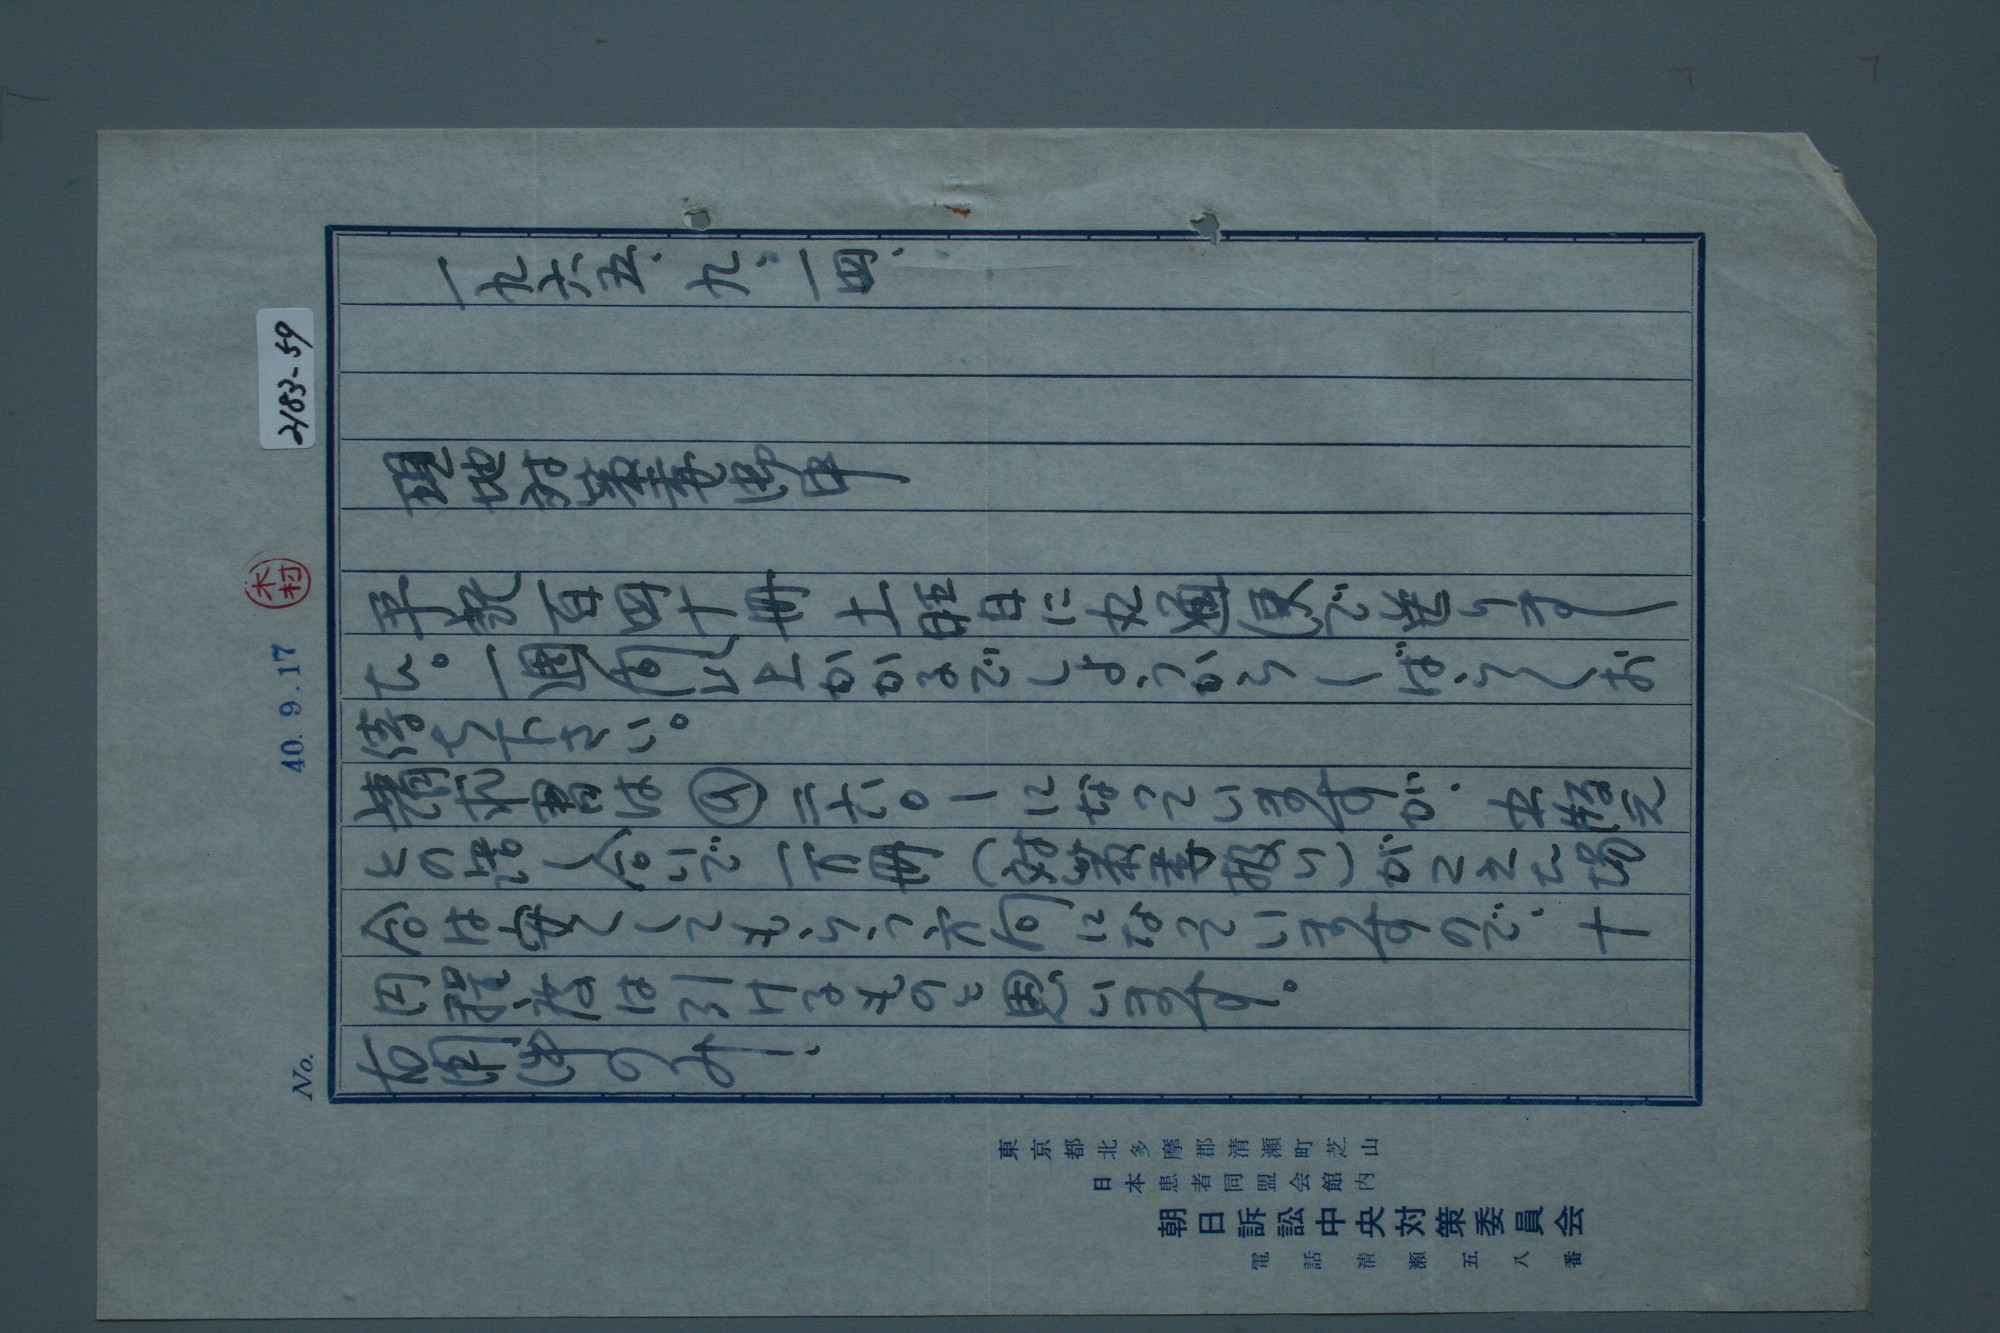 2183-59
木村
40.9.17
No.
一九六五、九、一四、
現地対策委御中
手記百四十冊土曜日に丸通便で送りまし
た。一週間以上かかるでしょうからしばらくお
待ち下さい。
請求書は@二六〇ーになっていますが、出版元
との話し合いで一万冊(対策委扱い)がこえた場
合は安くしてもらう方向になっていますので、十
円程度は引けるものと思います。
右用件のみ、
東京都北多摩郡清瀬町芝山
日本患者同盟会館内
朝日訴訟中央対策委員会
電話清瀬五八番